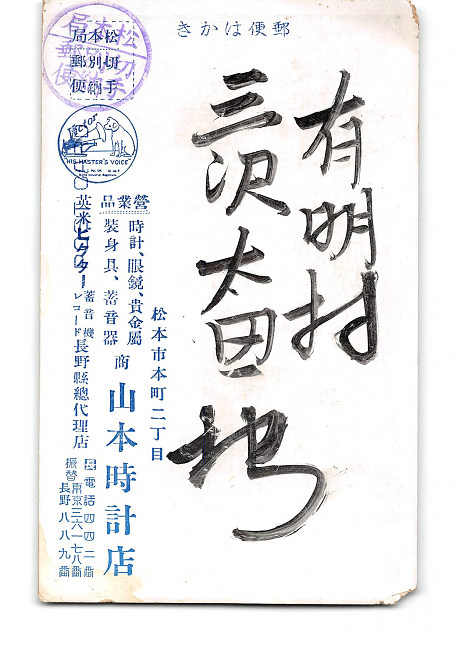 郵便はかき
有明村
三沢太田地
松本市本町二丁目
商 山本時計店
電話四四二番
振替東京三六一七八番
長野八八九番
營業品
時計、眼鏡、貴金屬
裝身具、蓄音器
英米ビクター
蓄音機
レコード
長野縣總代理店
Victor
HIS MASTER'S VOICE
松本局
切別郵
手納便